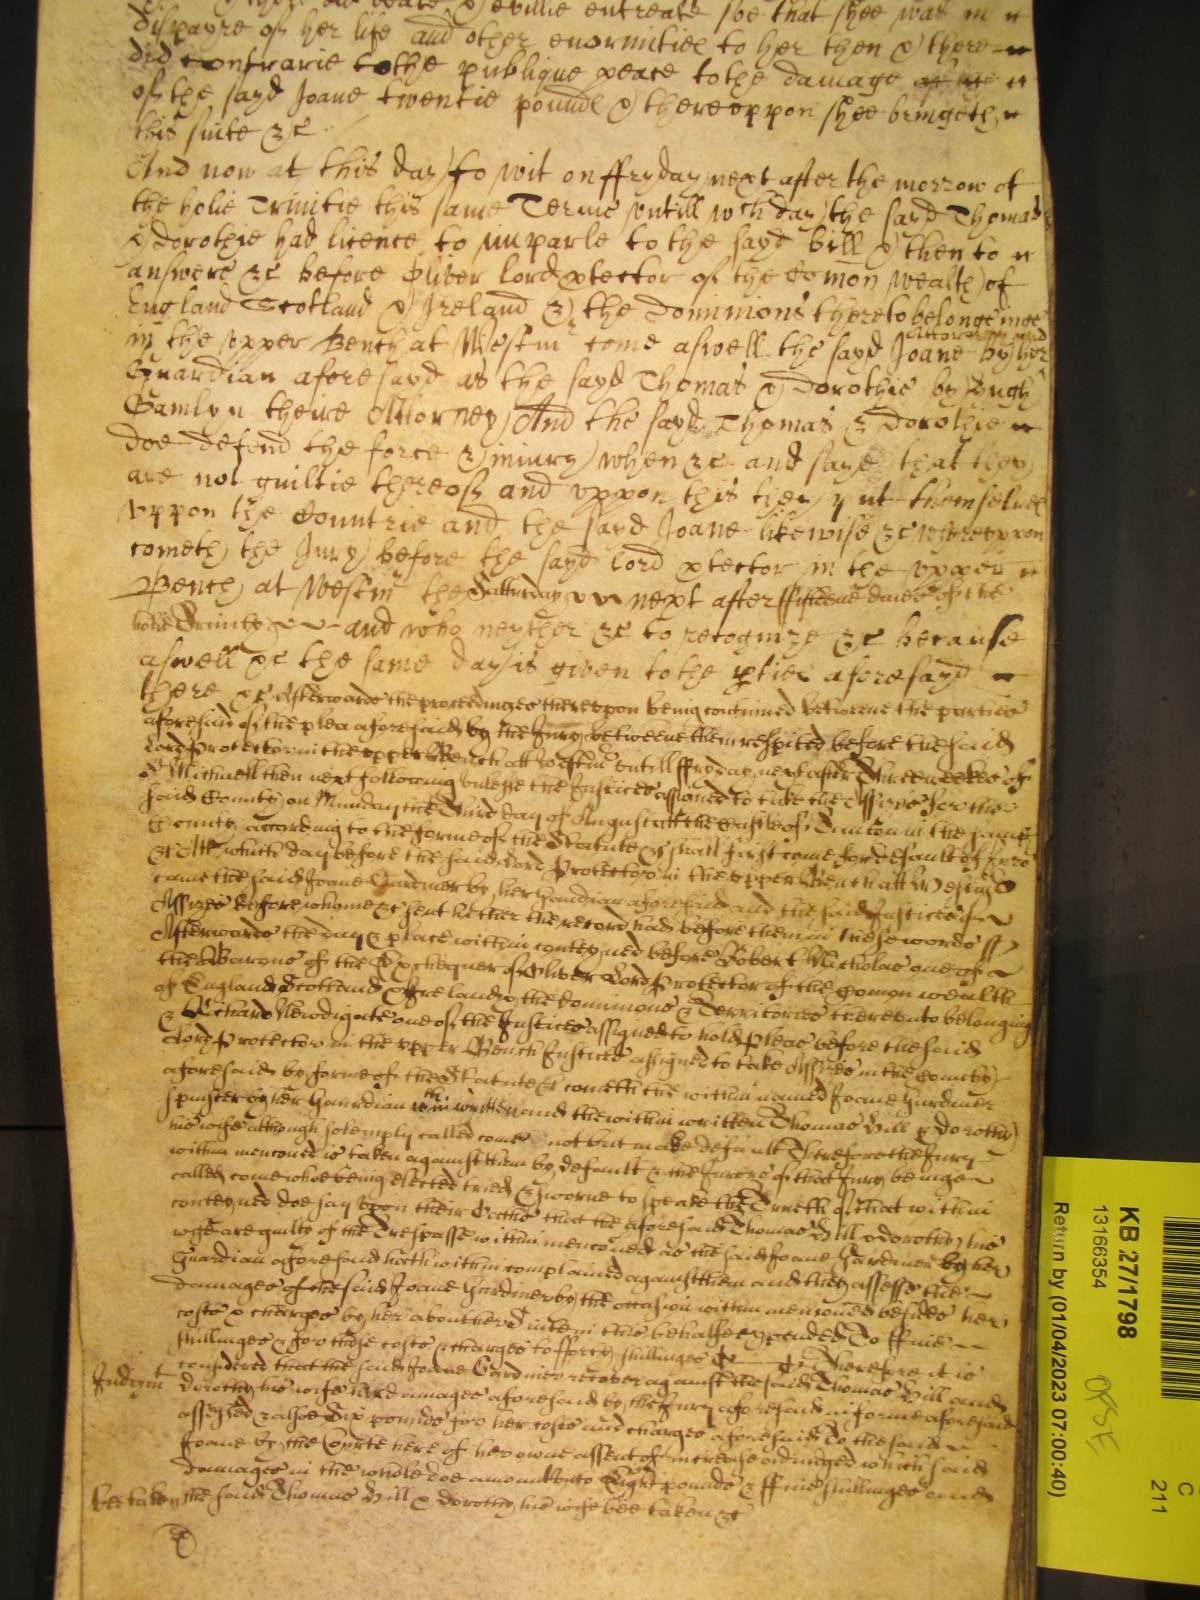 did beate & evillie entreate soe that shee was in
dispayre of her life and other enormities to her then & there
did contrarie to the publique peace to the damage
of the sayd Joane twentie pounds & thereuppon shee bringeth
this suite &c
And now at this day to wit on ffryday next after the morrow of
the holie Trinitie this same Terme untill wch day the sayd Thomas
& Dorothie had licence to imparle to the sayd bill & then to
answere &c before Oliver lord ptector of the Comon wealth of
England Scotland & Ireland & the dominions thereto belonginge
in the upper Bench at Westm come aswell the sayd Joane by her
Guardian aforesayd as the sayd Thomas & Dorothie by Hugh
Gamlyn theire Attorney And the sayd Thomas & Dorothie
doe defend the force & iniury when &c and saye that they
are not guiltie thereof and uppon this they put themselves
uppon the Countrie and the sayd Joane likewise &c whereuppon
cometh the Jury before the sayd lord ptector in the upper
Bench at Westm the Satturday next after ffifteene daies of the
holie Trinity and who neyther &c to recognize &c because
aswell &c the same day is given to the pties aforesayd
there &c Afterwards the proceedinges thereupon being continued betweene the parties
aforesaid of the plea aforesaid by the Jury betweene them respited before the said
Lord Protector in the upper Bench att Westmr untill ffryday next after Three weekes of
St Michaell then next following unlesse the Justices assigned to take the Assizes for the
said County on Munday the Third day of August att the Castle of Taunton in the same
County according to the forme of the Statute &c shall first come for default of Juro
&c Att which day before the said Lord Protector in the upper Bench att Westmr
came the said Joane Gardiner by her Gardian aforesaid and the said Justices of
Assizes before whome &c sent hether the record had before them in these words ss
Afterwards the day & place within conteyned before Robert Nicholas one of
the Barons of the Exchequer of Oliver Lord Protector of the Comon wealth
of England Scotland & Ireland & the dominions & Territories thereunto belonging
& Richard Newdigate one of the Justices assigned to hold pleas before the said
Lord Protector in the upper Bench Justices assigned to take Assizes in the County
aforesaid by forme of the Statute &c cometh the within named Joane Gardiner
spinster by her Gaurdian wthin written and the within written Thomas Hill & Dorothy
his wife although solemply called come not but make default Therefore the Jury
within menconed is taken against them by default & the Jurors of that Jury being
called come who being elected tried & sworne to speake the Trueth of that within
conteyned doe say upon their Oaths that the aforesaid Thomas Hill & Dorothy his
wife are guilty of the Trespasse within menconed as the said Joane Gardiner by her
Guardian aforesaid hath within complained against them and they assesse the
damages of the said Joane Gardiner by the occasion within menconed besides her
costs & charges by her about her Suite in this behalfe expended To ffive
shillinges & for those costs & charges to fforty shillinges Therefore it is
Judgmt
considered that the said Joane Gardiner recover against the said Thomas Hill and
Dorothy his wife her damages aforesaid by the Jury aforesaid in forme aforesaid
assessed & alsoe Six pounds for her costs and charges aforesaid To the said
Joane by the Courte here of her owne assent of increase adiudged which said
damages in the whole doe amount unto Eight pounds & ffive shillinges and
bee taken
the said Thomas Hill & Dorothy his wife bee taken &c
KB 27/1798
13166354
Return by (01/04/2023 07:00:40)
C
211